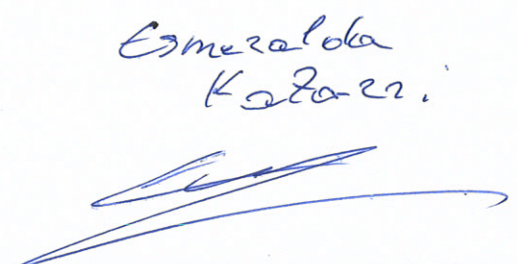 Esmeralda
Kazazi